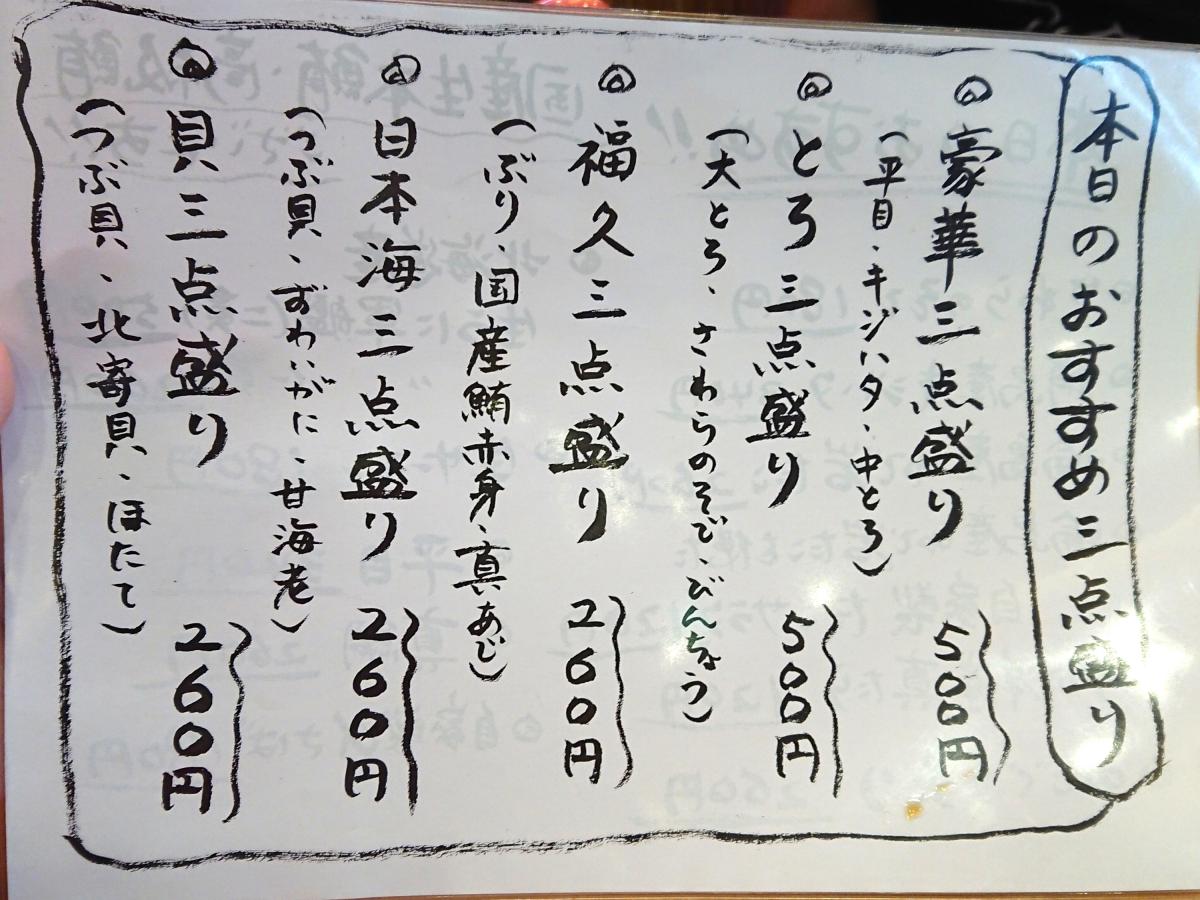 本日のおすすめ三点盛り
◎豪華三点盛り 500円
(平目・キジハタ・中とろ)
◎とろ三点盛り 500円
(大とろ、さわらのそで、びんちょう)
◎福久三点盛り 260円
(ぶり・国産鮪赤身・真あじ)
◎日本海三点盛り 260円
(つぶ貝、ずわいがに、甘海老)
◎貝三点盛り 260円
(つぶ貝・北寄貝・ほたて)